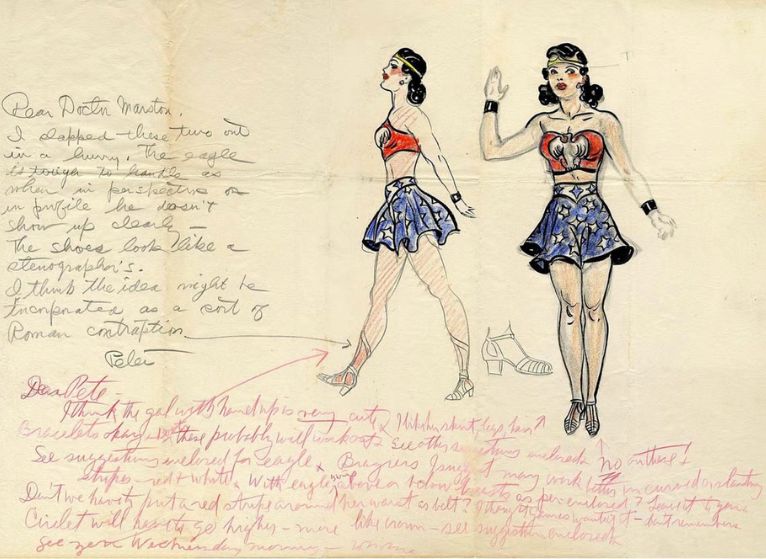 Dear Doctor Marston,
I slapped these two out
in a hurry. The eagle
is tough to handle as
when in perspective or
in profile he doesn't
show up clearly —
The shoes look like a
stenographer's.
I think the idea might be
incorporated as a sort of
Roman contraption
Peter
Dear Pete
I think the gal with hand up is very cute I like her skirt, legs, hair
Bracelets okay + these probably will work out. See other suggestions enclosed. No on these!
See suggestions enclosed for eagle.
stripes - red & white. With eagle above or below breasts as per enclosed? Leave it to you.
Don't we have to put a red stripe around her waist as belt? I thought wanted it - don't remember
Circlet will have to go higher - more like crown - see suggestion enclosed
See you Wednesday morning -